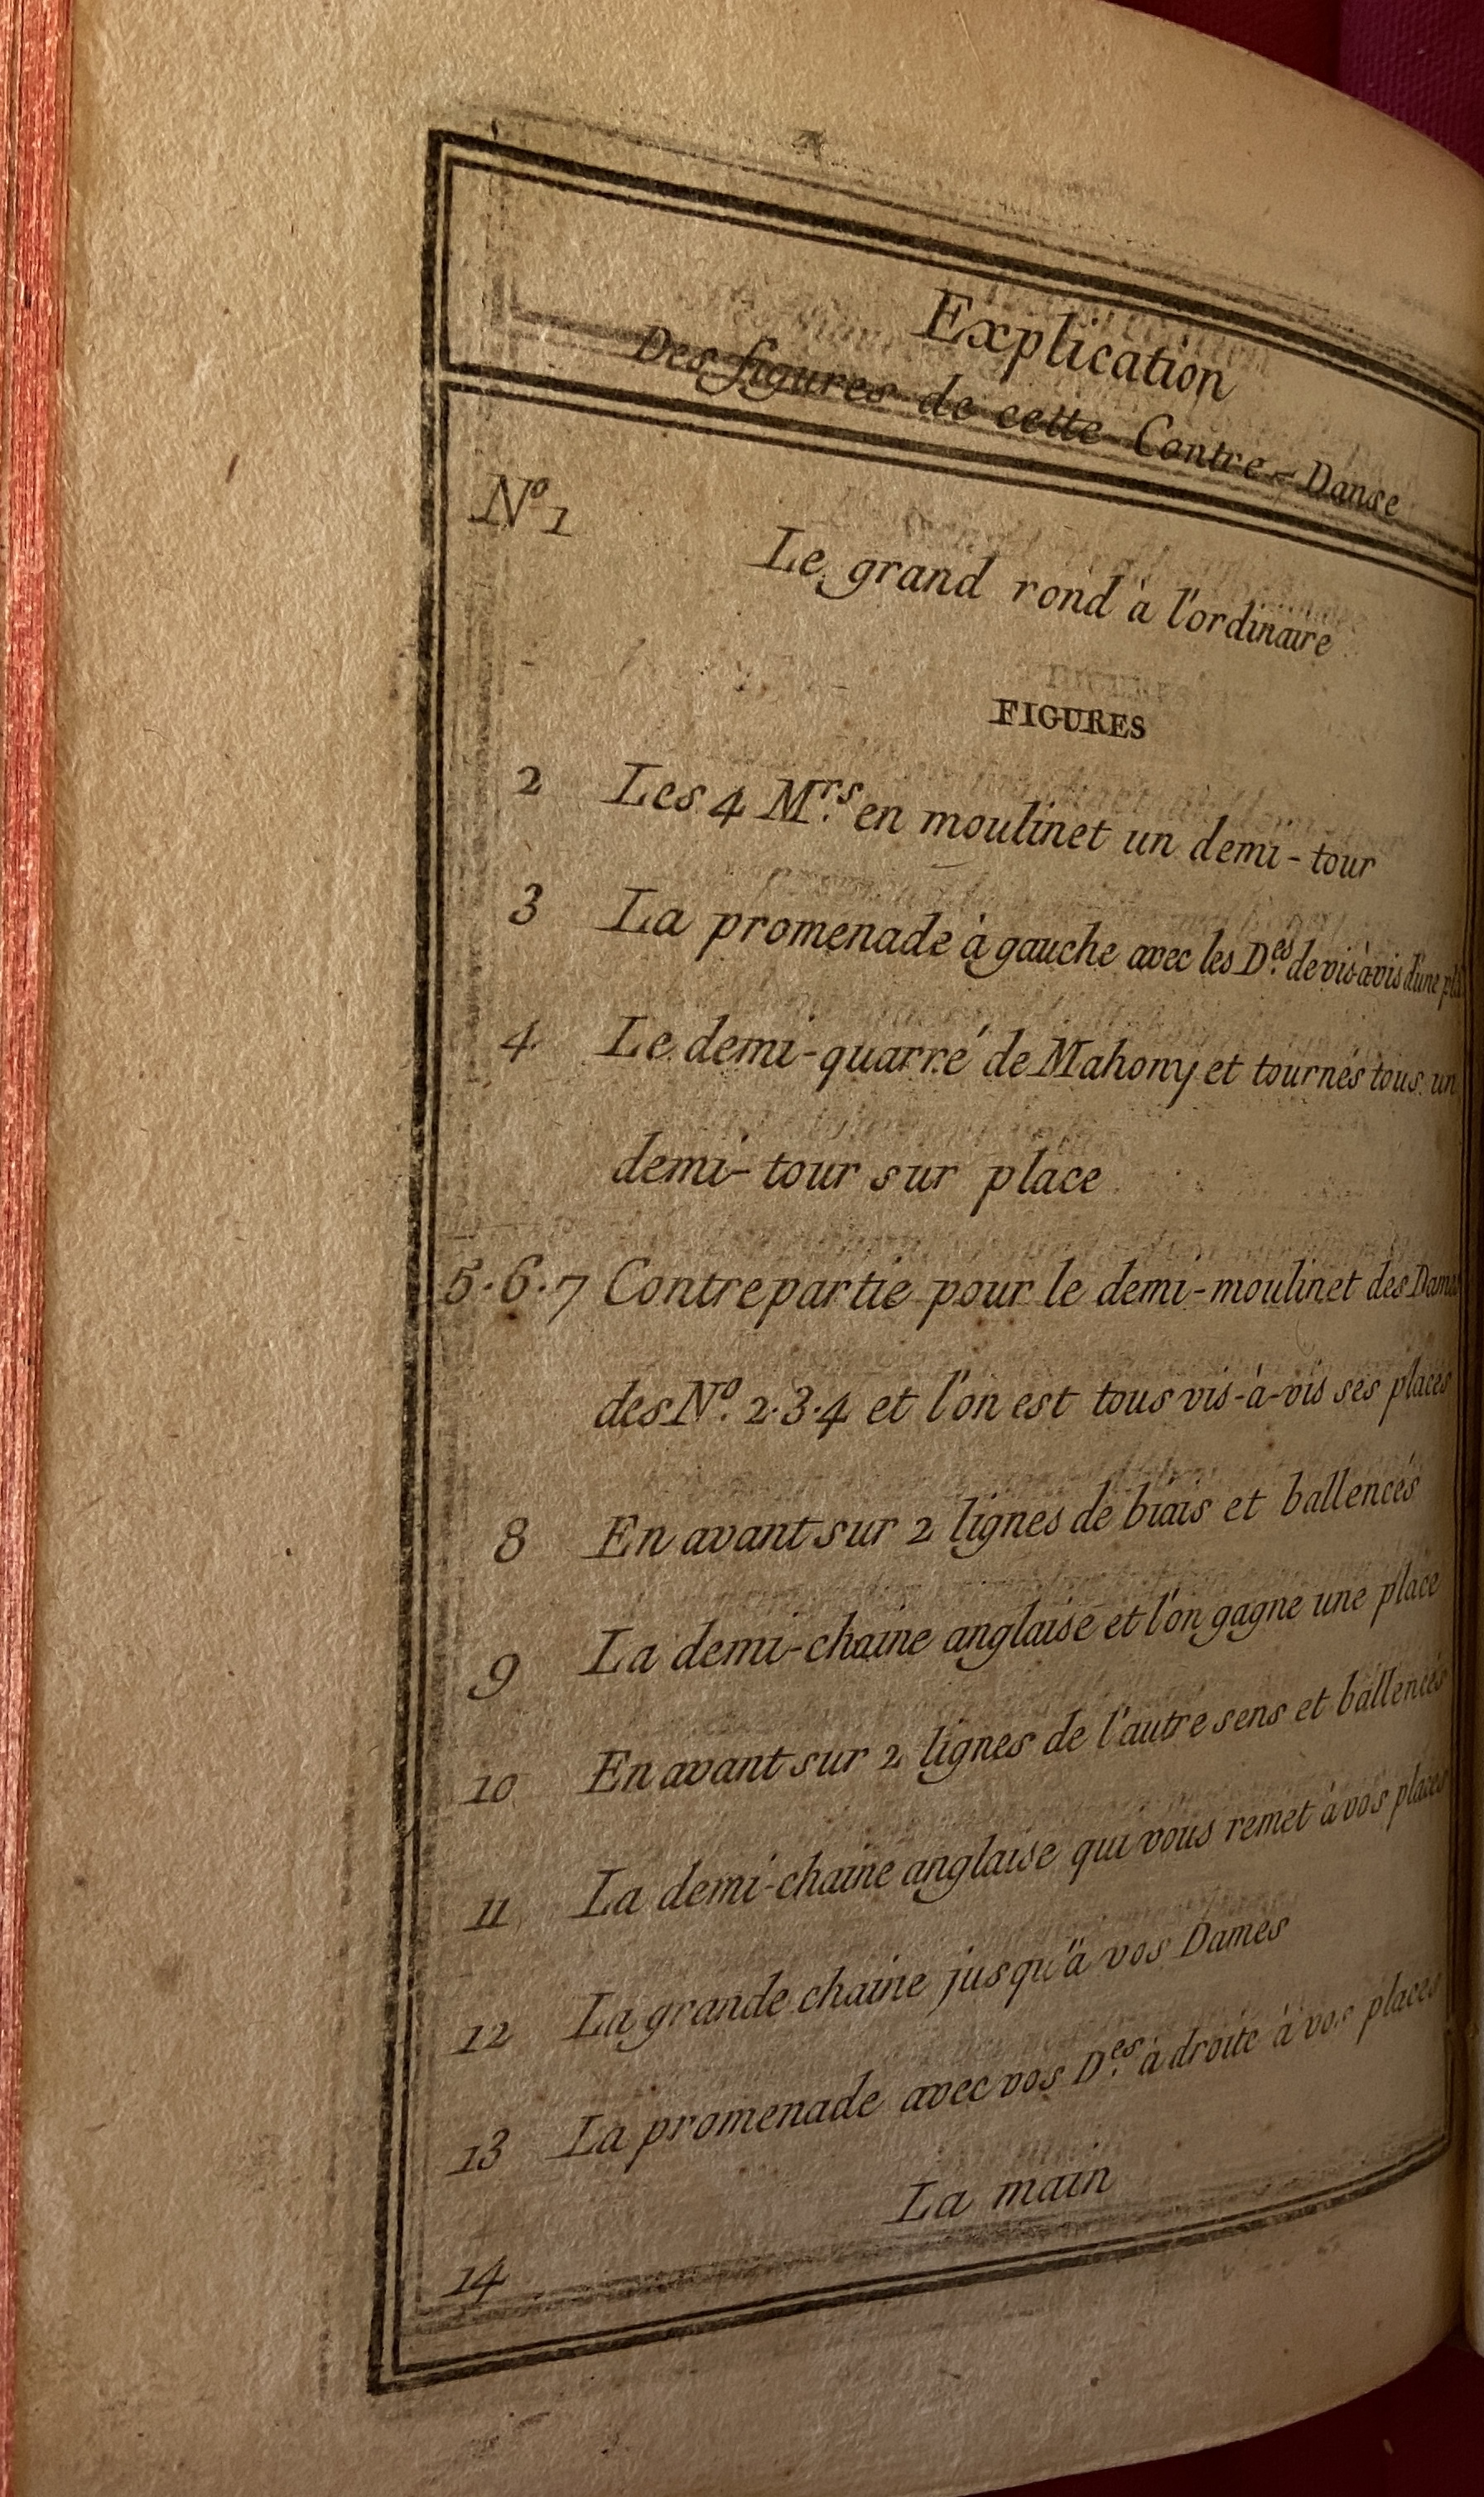 Explication
Des figures de cette Contre-Danse
Nº 1 Le grand rond à l'ordinaire
FIGURES
2 Les 4 Mrs. en moulinet un demi-tour
3 La promenade à gauche avec les Des. de vis-à-vis d'une
4 Le demi-quarré de Mahony et tournés tous un
demi-tour sur place
5.6.7 Contrepartie pour le demi-moulinet des
des Nº. 2.3.4 et l'on est tous vis-à-vis ses places
8 En avant sur 2 lignes de biais et ballencés
9 La demi-chaine anglaise et l'on gagne une place
10 En avant sur 2 lignes de l'autre sens et ballencés
11 La demi-chaine anglaise qui vous remet à vos places
12 La grande chaine jusqu'à vos Dames
13 La promenade avec vos Des. à droite à vos places
14 La main